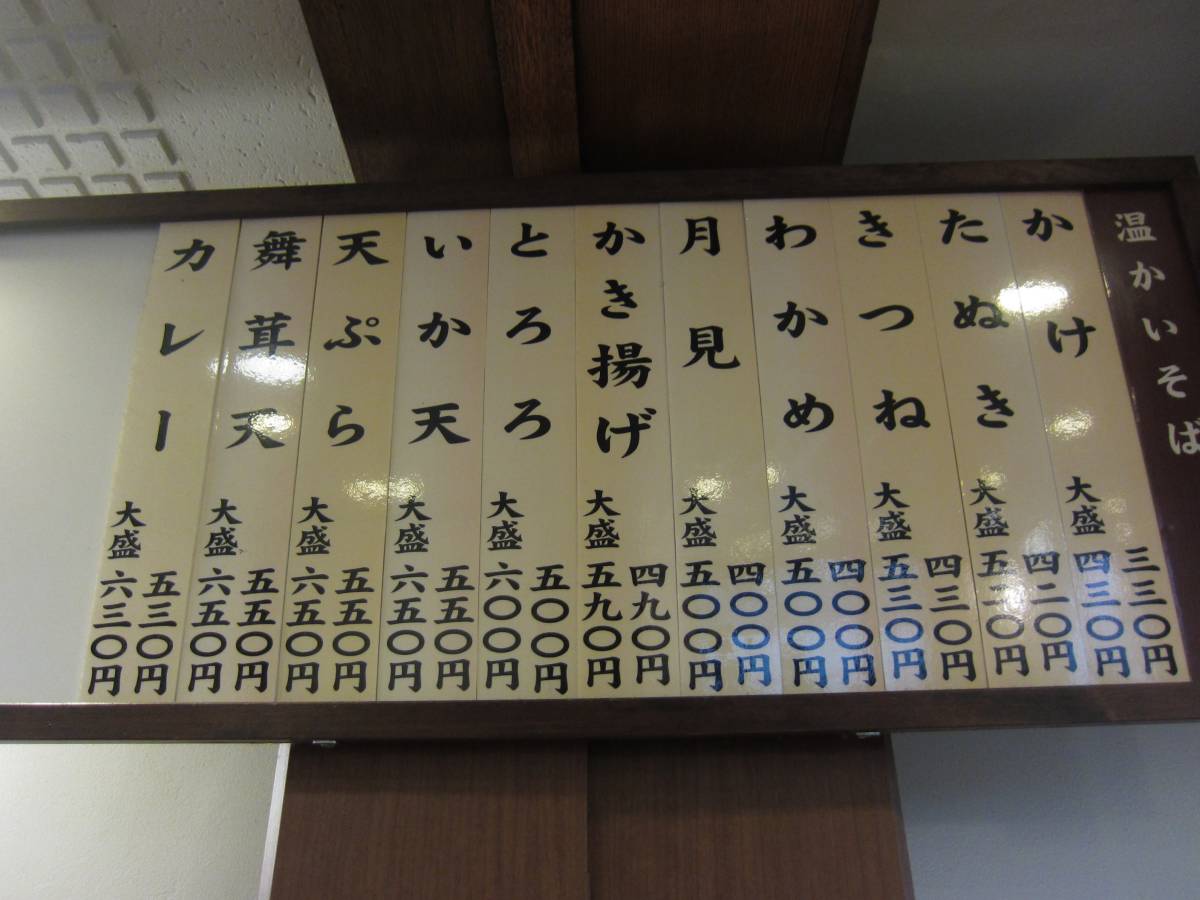 温かいそば
かけ 三三〇円
大盛 四三〇円
たぬき 四二〇円
大盛 五二〇円
きつね 四三〇円
大盛 五三〇円
わかめ 四〇〇円
大盛 五〇〇円
月見 四〇〇円
大盛 五〇〇円
かき揚げ 四九〇円
大盛 五九〇円
とろろ 五〇〇円
大盛 六〇〇円
いか天 五五〇円
大盛 六五〇円
天ぷら 五五〇円
大盛 六五〇円
舞茸天 五五〇円
大盛 六五〇円
カレー 五三〇円
大盛 六三〇円